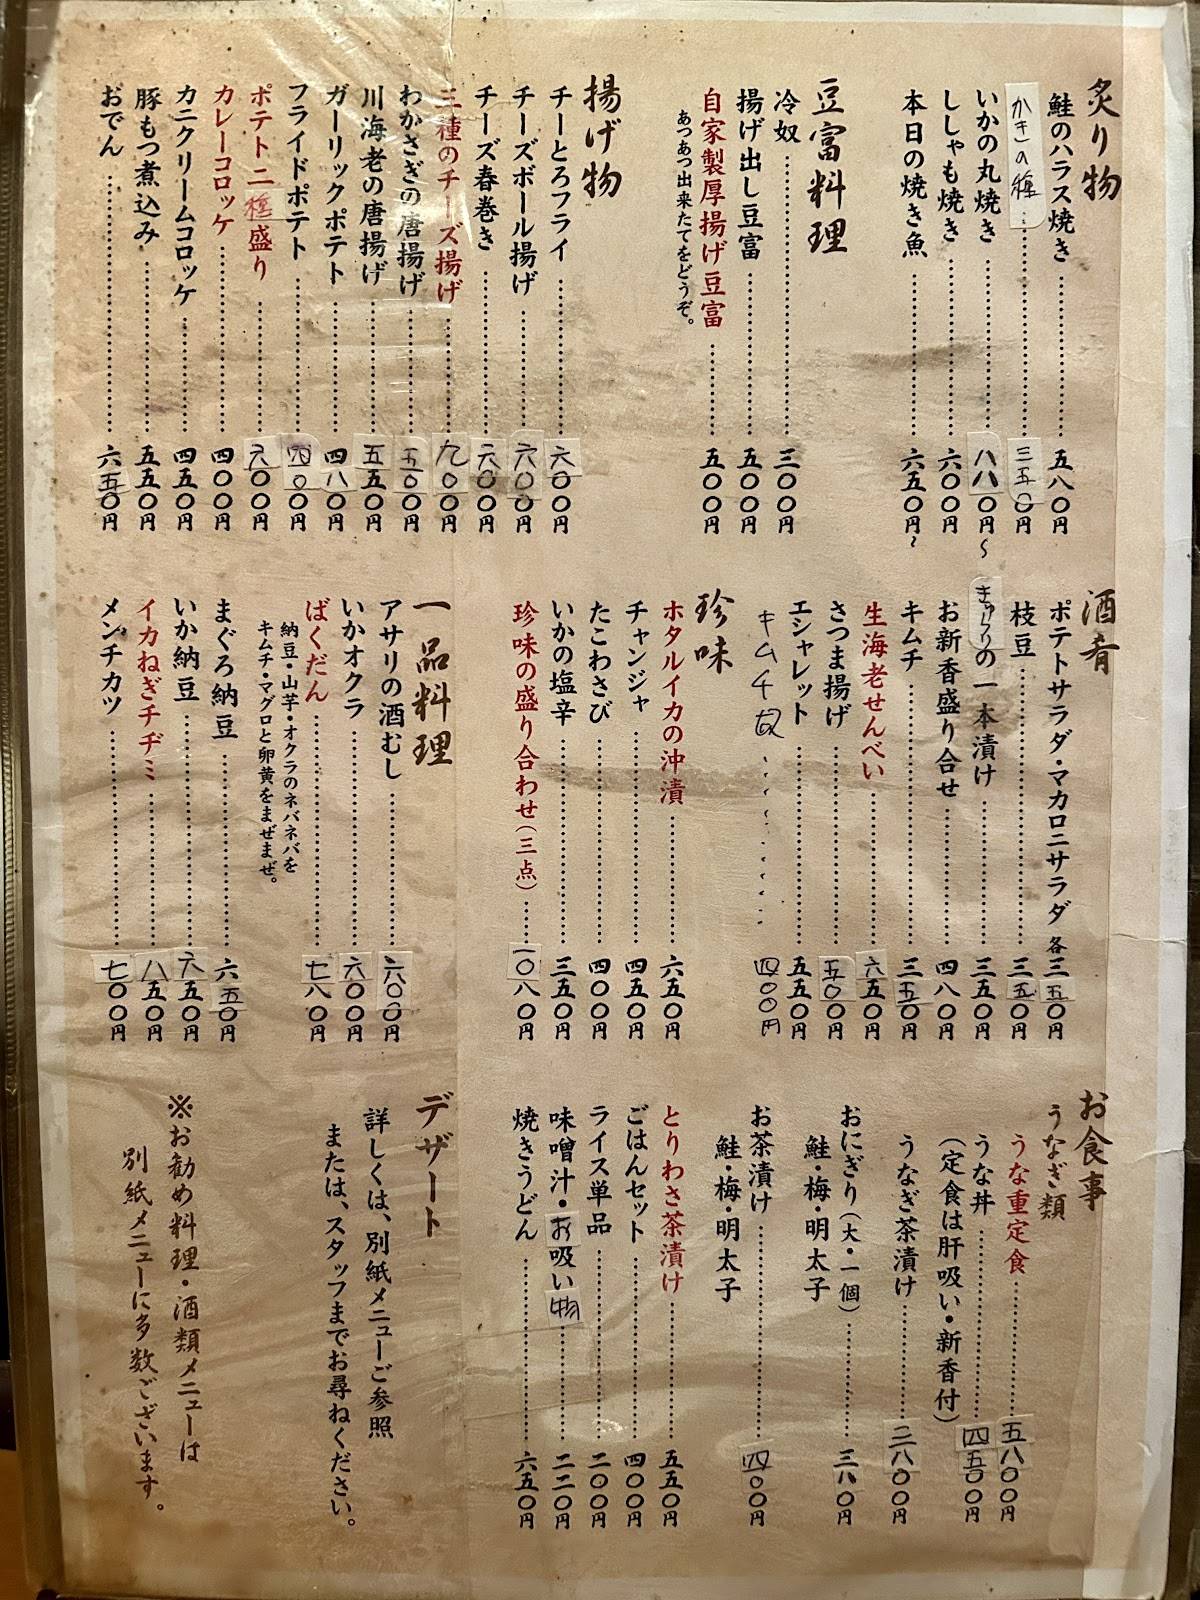 炙り物
鮭のハラス焼き……五八〇円
かきの……三五〇円
いかの丸焼き……八八〇円〜
ししゃも焼き……六〇〇円
本日の焼き魚……六五〇円〜
豆富料理
冷奴……三〇〇円
揚げ出し豆富……五〇〇円
自家製厚揚げ豆富……五〇〇円
あつあつ出来たてをどうぞ。
揚げ物
チーとろフライ……六〇〇円
チーズボール揚げ……六〇〇円
チーズ春巻き……六〇〇円
三種のチーズ揚げ……九〇〇円
わかさぎの唐揚げ……五〇〇円
川海老の唐揚げ……五五〇円
ガーリックポテト……四八〇円
フライドポテト……四〇〇円
ポテト二種盛り……六〇〇円
カレーコロッケ……四〇〇円
カニクリームコロッケ……四五〇円
豚もつ煮込み……五五〇円
おでん……六五〇円
酒肴
ポテトサラダ・マカロニサラダ 各三五〇円
枝豆……三五〇円
きゅうりの一本漬け……三五〇円
お新香盛り合せ……四八〇円
キムチ……三五〇円
生海老せんべい……六五〇円
さつま揚げ……五〇〇円
エシャレット……五五〇円
キムチ奴……四〇〇円
珍味
ホタルイカの沖漬……六五〇円
チャンジャ……四五〇円
たこわさび……四〇〇円
いかの塩辛……三五〇円
珍味の盛り合わせ（三点）……一〇八〇円
一品料理
アサリの酒むし……六〇〇円
いかオクラ……六〇〇円
ばくだん……七八〇円
納豆・山芋・オクラのネバネバを
キムチ・マグロと卵黄をまぜまぜ。
まぐろ納豆……六五〇円
いか納豆……六五〇円
イカねぎチヂミ……八五〇円
メンチカツ……七〇〇円
お食事
うなぎ類
うな重定食……五八〇〇円
うな丼……四五〇〇円
（定食は肝吸い・新香付）
うなぎ茶漬け……二八〇〇円
おにぎり（大・一個）……三八〇円
鮭・梅・明太子
お茶漬け……四〇〇円
鮭・梅・明太子
とりわさ茶漬け……五五〇円
ごはんセット……四〇〇円
ライス単品……二〇〇円
味噌汁・お吸い物……二二〇円
焼きうどん……六五〇円
デザート
詳しくは、別紙メニューご参照
または、スタッフまでお尋ねください。
※お勧め料理・酒類メニューは
別紙メニューに多数ございます。